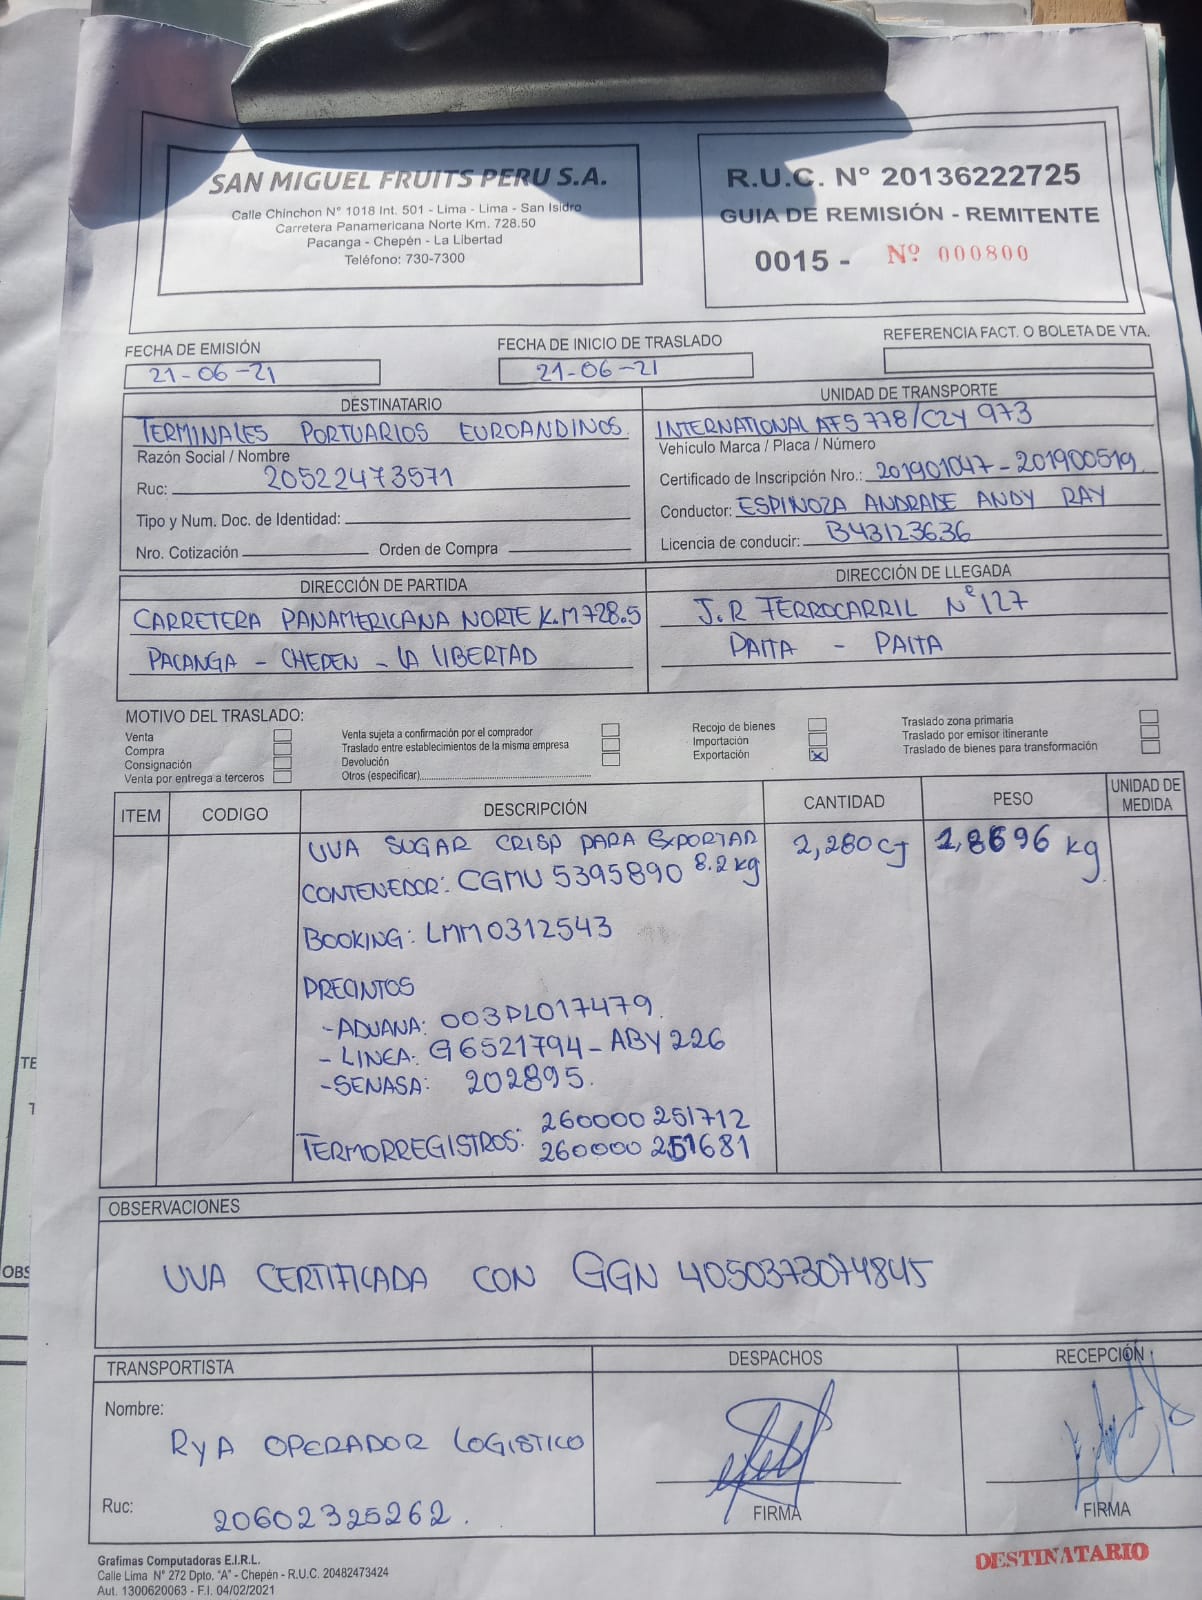 SAN MIGUEL FRUITS PERU S.A.
Calle Chinchon N° 1018 Int. 501 - Lima - Lima - San Isidro
Carretera Panamericana Norte Km. 728.50
Pacanga - Chepén - La Libertad
Teléfono: 730-7300
R.U.C. N° 20136222725
GUIA DE REMISIÓN - REMITENTE
0015 - Nº 000800
FECHA DE EMISIÓN
21-06-21
FECHA DE INICIO DE TRASLADO
21-06-21
REFERENCIA FACT. O BOLETA DE VTA.
DESTINATARIO
TERMINALES PORTUARIOS EUROANDINOS
Razón Social / Nombre
Ruc: 20522473571
Tipo y Num. Doc. de Identidad:
Nro. Cotización Orden de Compra
UNIDAD DE TRANSPORTE
INTERNATIONAL AFS 778/CZY 973
Vehículo Marca / Placa / Número
Certificado de Inscripción Nro.: 201901047-201900519
Conductor: ESPINOZA ANDRADE ANDY RAY
Licencia de conducir: B43123636
DIRECCIÓN DE PARTIDA
CARRETERA PANAMERICANA NORTE K.M728.5
PACANGA - CHEPEN - LA LIBERTAD
DIRECCIÓN DE LLEGADA
J.R FERROCARRIL Nº127
PAITA - PAITA
MOTIVO DEL TRASLADO:
Venta
Compra
Consignación
Venta por entrega a terceros
Venta sujeta a confirmación por el comprador
Traslado entre establecimientos de la misma empresa
Devolución
Otros (especificar)
Recojo de bienes
Importación
Exportación X
Traslado zona primaria
Traslado por emisor itinerante
Traslado de bienes para transformación
ITEM CODIGO DESCRIPCIÓN CANTIDAD PESO UNIDAD DE MEDIDA
UVA SUGAR CRISP PARA EXPORTAR 2,280CJ kg
CONTENEDOR: CGMU 5395890 8.2kg
BOOKING: LMM0312543
PRECINTOS
-ADUANA: 003PL017479.
- LINEA: G6521794-ABY 226
-SENASA: 202895.
TERMORREGISTROS: 260000251712
260000251681
OBSERVACIONES
UVA CERTIFICADA CON GGN 4050373074845
TRANSPORTISTA
Nombre:
RYA OPERADOR LOGISTICO
Ruc: 20602325262.
DESPACHOS
FIRMA
RECEPCIÓN
FIRMA
Grafimas Computadoras E.I.R.L.
Calle Lima N° 272 Dpto. "A" - Chepén - R.U.C. 20482473424
Aut. 1300620063 - F.I. 04/02/2021
DESTINATARIO
TE
T
OBS